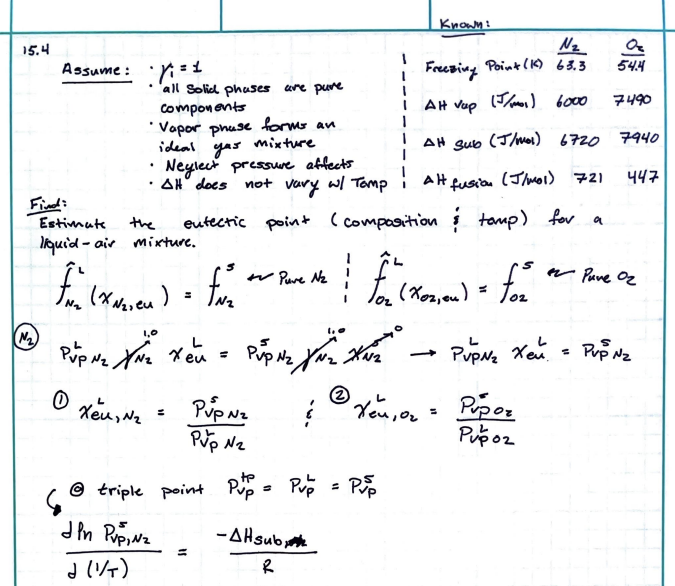 Known:
15.4
Assume: · γᵢ = 1
· all solid phases are pure
components
· Vapor phase forms an
ideal gas mixture
· Neglect pressure affects
· ΔH does not vary w/ Temp
N₂ O₂
Freezing Point (K) 63.3 54.4
ΔH vap (J/mol) 6000 7490
ΔH sub (J/mol) 6720 7940
ΔH fusion (J/mol) 721 447
Find:
Estimate the eutectic point (composition & temp) for a
liquid-air mixture.
f̂ᴸ_N₂ (x_N₂,eu) = fˢ_N₂ ← Pure N₂ | f̂ᴸ_O₂ (x_O₂,eu) = fˢ_O₂ ← Pure O₂
(N₂) Pᴸvp N₂ γ_N₂ 1.0 xᴸeu = Pˢvp N₂ γ_N₂ 1.0 x_N₂ → Pᴸvp N₂ xᴸeu = Pˢvp N₂
① xᴸeu,N₂ = Pˢvp N₂ / Pᴸvp N₂ & ② xᴸeu,O₂ = Pˢvp O₂ / Pᴸvp O₂
@ triple point Pᵗᵖvp = Pᴸvp = Pˢvp
d ln Pˢvp,N₂ / d (1/T) = -ΔHsub / R